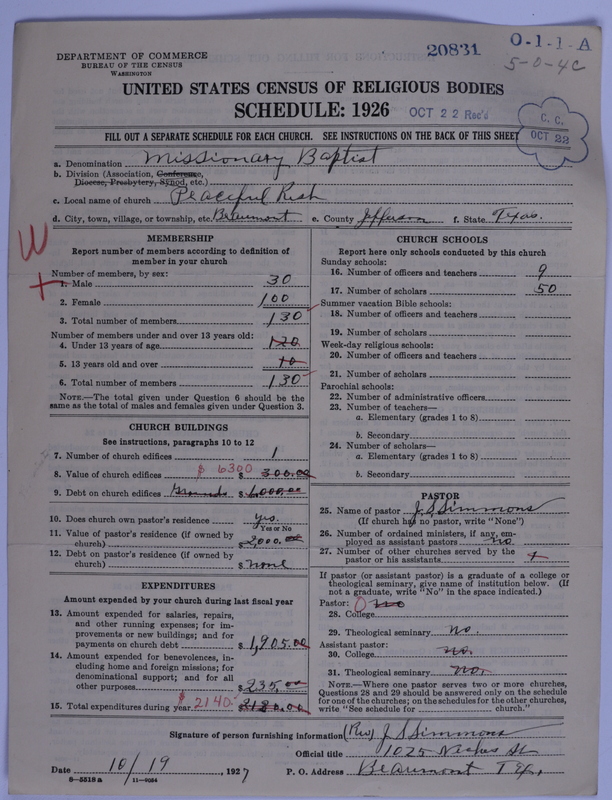 20831 O-1-1-A
5-0-4C
DEPARTMENT OF COMMERCE
BUREAU OF THE CENSUS
WASHINGTON
UNITED STATES CENSUS OF RELIGIOUS BODIES
SCHEDULE: 1926 OCT 22 Rec'd
C. C.
OCT 22
FILL OUT A SEPARATE SCHEDULE FOR EACH CHURCH. SEE INSTRUCTIONS ON THE BACK OF THIS SHEET
a. Denomination Missionary Baptist
b. Division (Association, Conference,
Diocese, Presbytery, Synod, etc.)
c. Local name of church Peaceful Rest
d. City, town, village, or township, etc. Beaumont e. County Jefferson f. State Texas.
W
MEMBERSHIP
Report number of members according to definition of
member in your church
Number of members, by sex:
1. Male 30
2. Female 100
3. Total number of members 130
Number of members under and over 13 years old:
4. Under 13 years of age 120
5. 13 years old and over 10
6. Total number of members 130
NOTE.—The total given under Question 6 should be
the same as the total of males and females given under Question 3.
CHURCH BUILDINGS
See instructions, paragraphs 10 to 12
7. Number of church edifices 1
8. Value of church edifices $ 6300 $ 300.00
9. Debt on church edifices Grounds $ 6,000.00
10. Does church own pastor's residence yes.
Yes or No
11. Value of pastor's residence (if owned by
church) $ 2,000.00
12. Debt on pastor's residence (if owned by
church) $ none
EXPENDITURES
Amount expended by your church during last fiscal year
13. Amount expended for salaries, repairs,
and other running expenses; for im-
provements or new buildings; and for
payments on church debt $ 1,905.00
14. Amount expended for benevolences, in-
cluding home and foreign missions; for
denominational support; and for all
other purposes $ 235.00
15. Total expenditures during year $ 2140 2120.00
CHURCH SCHOOLS
Report here only schools conducted by this church
Sunday schools:
16. Number of officers and teachers 9
17. Number of scholars 50
Summer vacation Bible schools:
18. Number of officers and teachers
19. Number of scholars
Week-day religious schools:
20. Number of officers and teachers
21. Number of scholars
Parochial schools:
22. Number of administrative officers
23. Number of teachers—
a. Elementary (grades 1 to 8)
b. Secondary
24. Number of scholars—
a. Elementary (grades 1 to 8)
b. Secondary
PASTOR
25. Name of pastor J S Simmons
(If church has no pastor, write "None")
26. Number of ordained ministers, if any, em-
ployed as assistant pastors no.
27. Number of other churches served by the
pastor or his assistants
If pastor (or assistant pastor) is a graduate of a college or
theological seminary, give name of institution below. (If
not a graduate, write "No" in the space indicated.)
Pastor:
28. College 0 no
29. Theological seminary no.
Assistant pastor:
30. College no.
31. Theological seminary no.
NOTE.—Where one pastor serves two or more churches,
Questions 28 and 29 should be answered only on the schedule
for one of the churches; on the schedules for the other churches,
write "See schedule for church."
Signature of person furnishing information (Rev) J S Simmons
Official title 1025 Neches St
Date 10/19, 1927 P. O. Address Beaumont Tex,
8—5518 a 11—9084